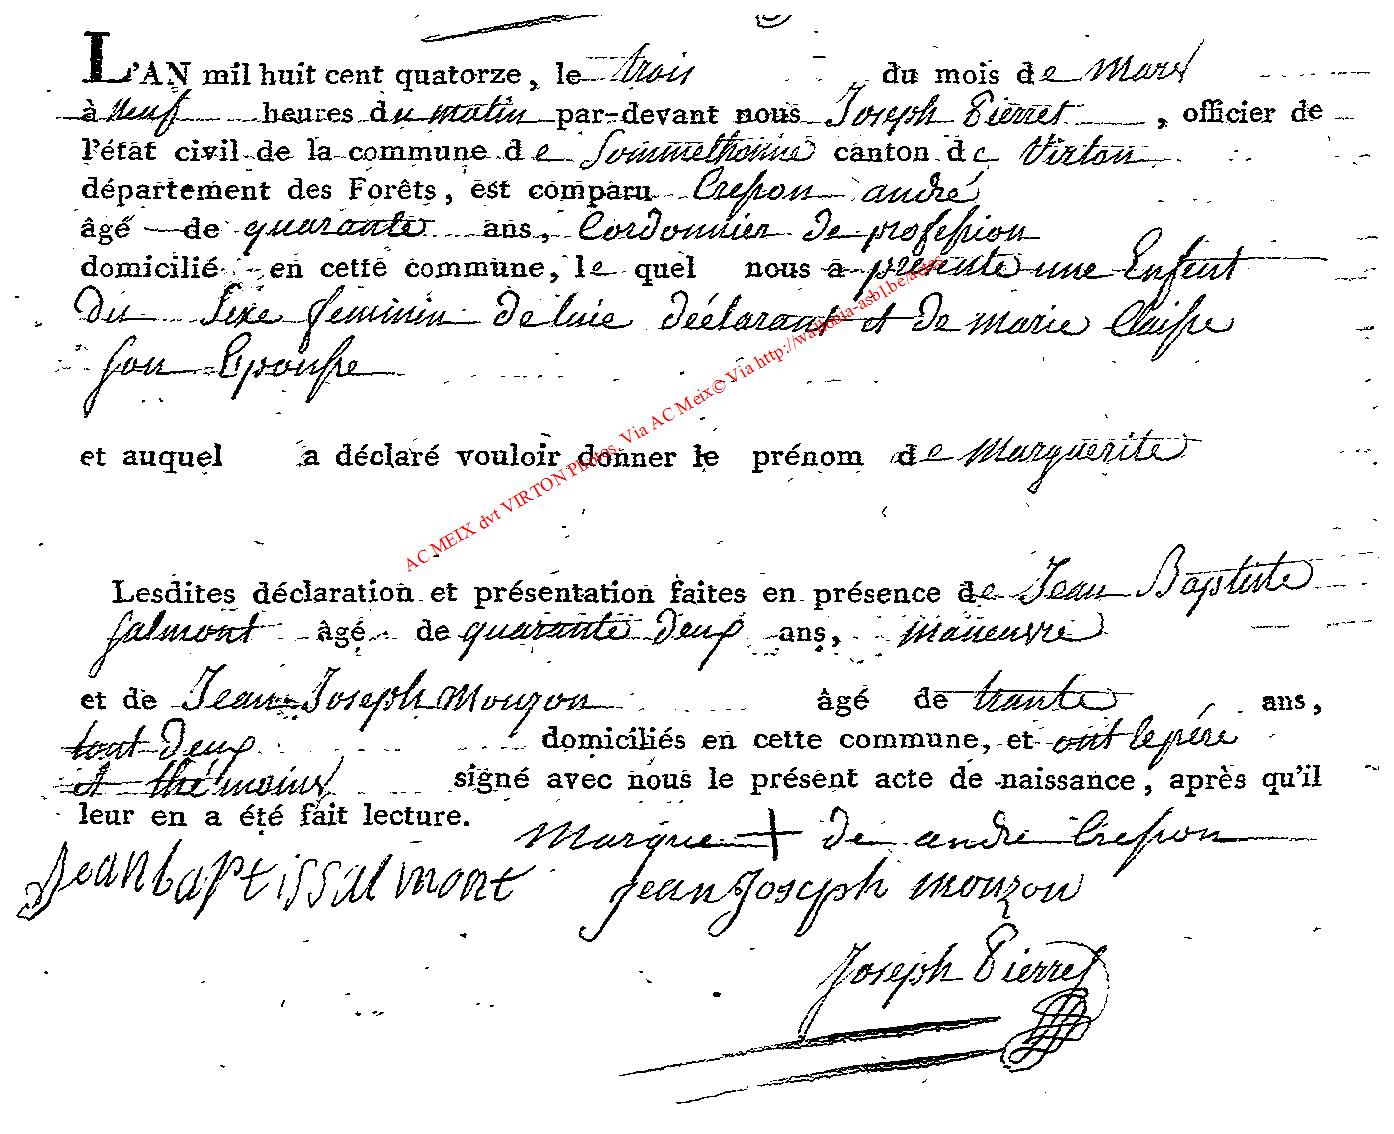 L'AN mil huit cent quatorze, le trois du mois de Mars
à neuf heures du matin par-devant nous Joseph Pierret, officier de
l'état civil de la commune de Sommethonne canton de Virton
département des Forêts, est comparu Crespon andré
âgé de quarante ans, Cordonnier de profession
domicilié en cette commune, le quel nous a présenté une Enfent
du Sexe feminin de luie déclarant et de marie Claisse
son Epousse
et auquel a déclaré vouloir donner le prénom de Marguerite
Lesdites déclaration et présentation faites en présence de Jean Baptiste
Salmont âgé de quarante deux ans, maneuvre
et de Jean Joseph Mouzon âgé de trante ans,
tout deux domiciliés en cette commune, et ont le pére
et thémoins signé avec nous le présent acte de naissance, après qu'il
leur en a été fait lecture.
Marque + de andré Crespon
Jean baptissalmont Jean Joseph mouzon
Joseph Pierret
AC MEIX dvt VIRTON Photos. Via AC Meix© Via http://wallonia-asbl.be/